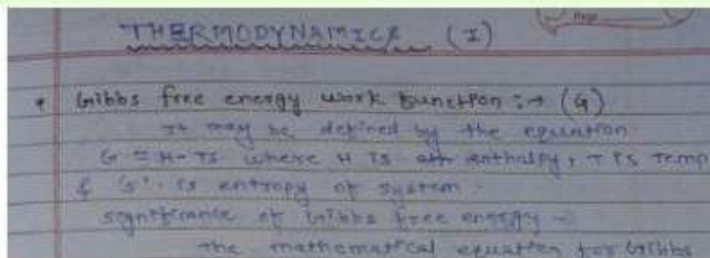 THERMODYNAMICS (I)
Page
• Gibbs free energy work function :→ (G)
It may be defined by the equation
G = H-TS where H is enthalpy, T is Temp
& 's' is entropy of system.
significance of Gibbs free energy →
the mathematical equation for Gibbs